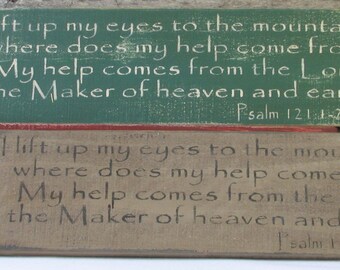 lift up my eyes to the mounta
where does my help come fro
My help comes from the Lo
he Maker of heaven and ear
Psalm 121:1-2
I lift up my eyes to the mou
where does my help come
My help comes from the
the Maker of heaven and
Psalm 1